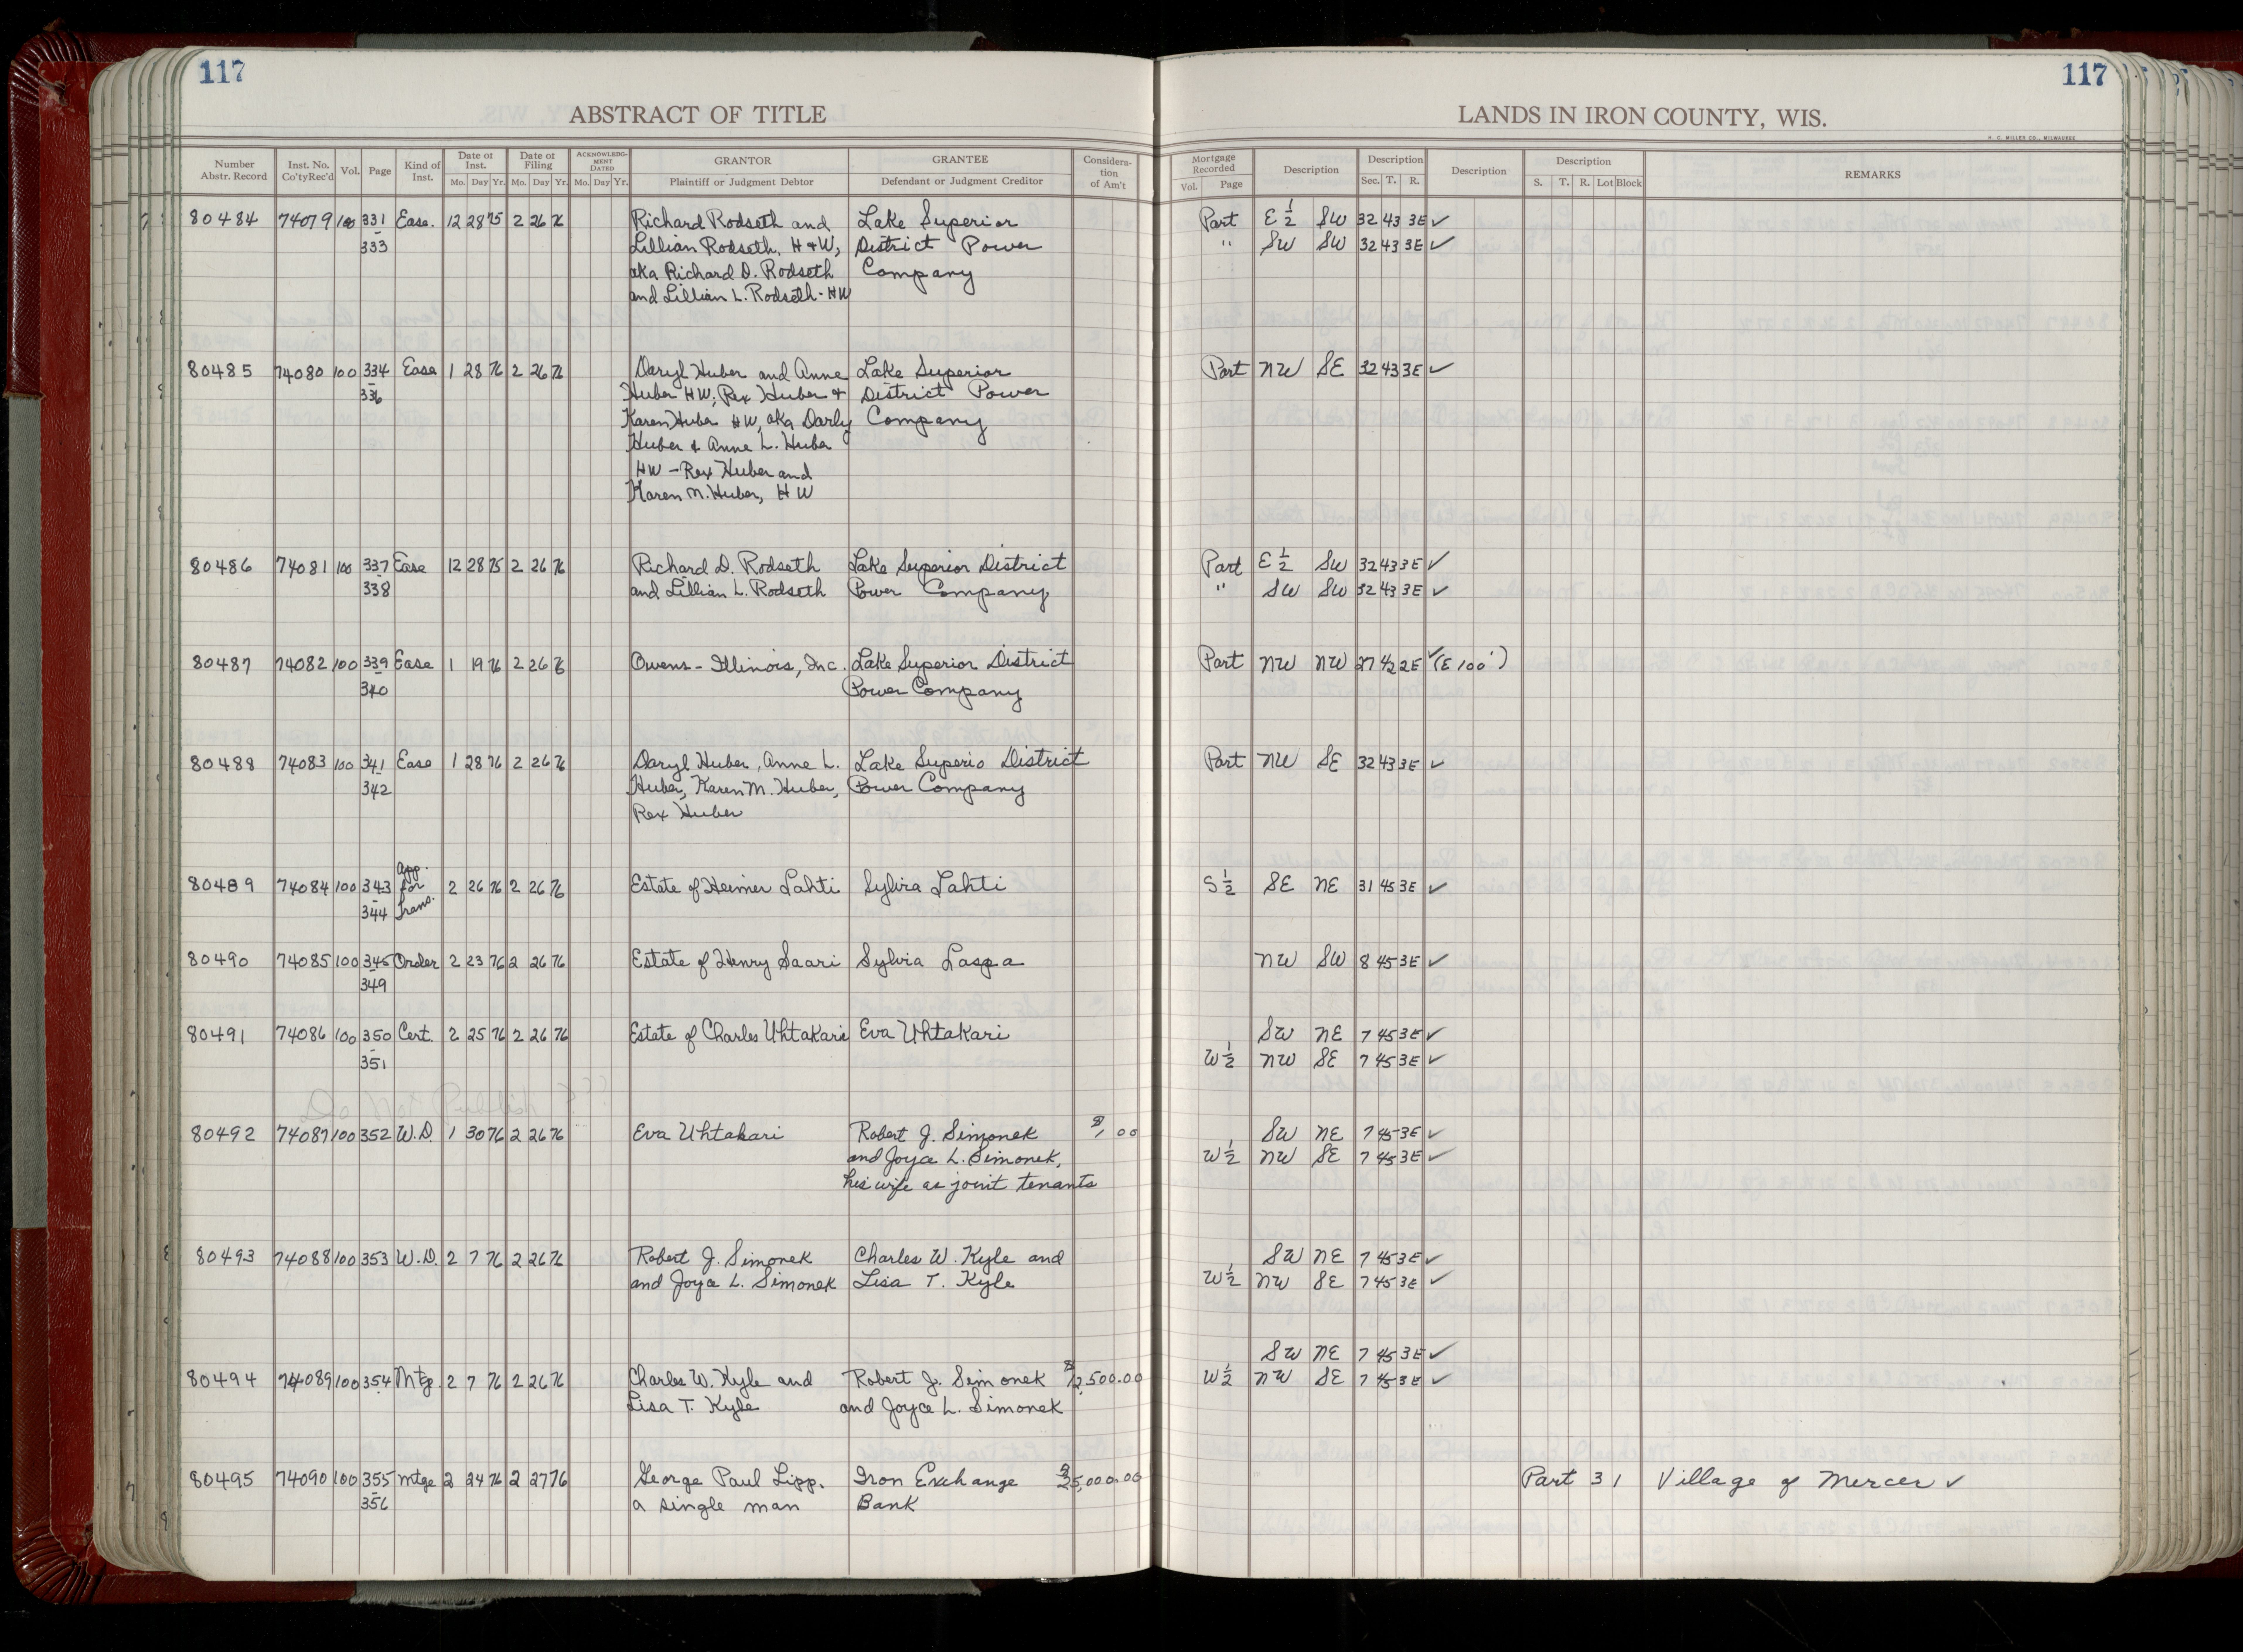 117
117
ABSTRACT OF TITLE
LANDS IN IRON COUNTY, WIS.
H. C. MILLER CO., MILWAUKEE
Number Abstr. Record Inst. No. Co'tyRec'd Vol. Page Kind of Inst. Date of Inst. Mo. Day Yr. Date of Filing Mo. Day Yr. ACKNOWLEDGMENT DATED Mo. Day Yr. GRANTOR Plaintiff or Judgment Debtor GRANTEE Defendant or Judgment Creditor Consideration of Am't Mortgage Recorded Vol. Page Description Description Sec. T. R. Description Description S. T. R. Lot Block REMARKS
80484 74079 100 331 Ease. 12 28 75 2 26 76 Richard Rodseth and Lake Superior Part E 1/2 SW 32 43 3E ✓
333 Lillian Rodseth, H+W, District Power " SW SW 32 43 3E ✓
aka Richard D. Rodseth Company
and Lillian L. Rodseth - HW
80485 74080 100 334 Ease 1 28 76 2 26 76 Daryl Huber and Anne Lake Superior Part NW SE 32 43 3E ✓
336 Huber HW; Rex Huber + District Power
Karen Huber HW, aka Darly Company
Huber & Anne L. Huber
HW - Rex Huber and
Karen M. Huber, HW
80486 74081 100 337 Ease 12 28 75 2 26 76 Richard D. Rodseth Lake Superior District Part E 1/2 SW 32 43 3E ✓
338 and Lillian L. Rodseth Power Company " SW SW 32 43 3E ✓
80487 74082 100 339 Ease 1 19 76 2 26 76 Owens-Illinois, Inc. Lake Superior District Part NW NW 27 42 2E ✓ (E 100')
340 Power Company
80488 74083 100 341 Ease 1 28 76 2 26 76 Daryl Huber, Anne L. Lake Superio District Part NW SE 32 43 3E ✓
342 Huber, Karen M. Huber, Power Company
Rex Huber
80489 74084 100 343 App. for Trans. 2 26 76 2 26 76 Estate of Heimer Lahti Sylvia Lahti S 1/2 SE NE 31 45 3E ✓
344
80490 74085 100 345 Order 2 23 76 2 26 76 Estate of Henry Saari Sylvia Laspa NW SW 8 45 3E ✓
349
80491 74086 100 350 Cert. 2 25 76 2 26 76 Estate of Charles Uhtakari Eva Uhtakari SW NE 7 45 3E ✓
351 W 1/2 NW SE 7 45 3E ✓
Do Not Publish ???
80492 74087 100 352 W.D. 1 30 76 2 26 76 Eva Uhtakari Robert J. Simonek $1.00 SW NE 7 45 3E ✓
and Joyce L. Simonek, W 1/2 NW SE 7 45 3E ✓
his wife as joint tenants
80493 74088 100 353 W.D. 2 7 76 2 26 76 Robert J. Simonek Charles W. Kyle and SW NE 7 45 3E ✓
and Joyce L. Simonek Lisa T. Kyle W 1/2 NW SE 7 45 3E ✓
SW NE 7 45 3E ✓
80494 74089 100 354 Mtg. 2 7 76 2 26 76 Charles W. Kyle and Robert J. Simonek $12,500.00 W 1/2 NW SE 7 45 3E ✓
Lisa T. Kyle and Joyce L. Simonek
80495 74090 100 355 Mtge 2 24 76 2 27 76 George Paul Lipp, Iron Exchange $25,000.00 Part 31 Village of Mercer ✓
356 a single man Bank